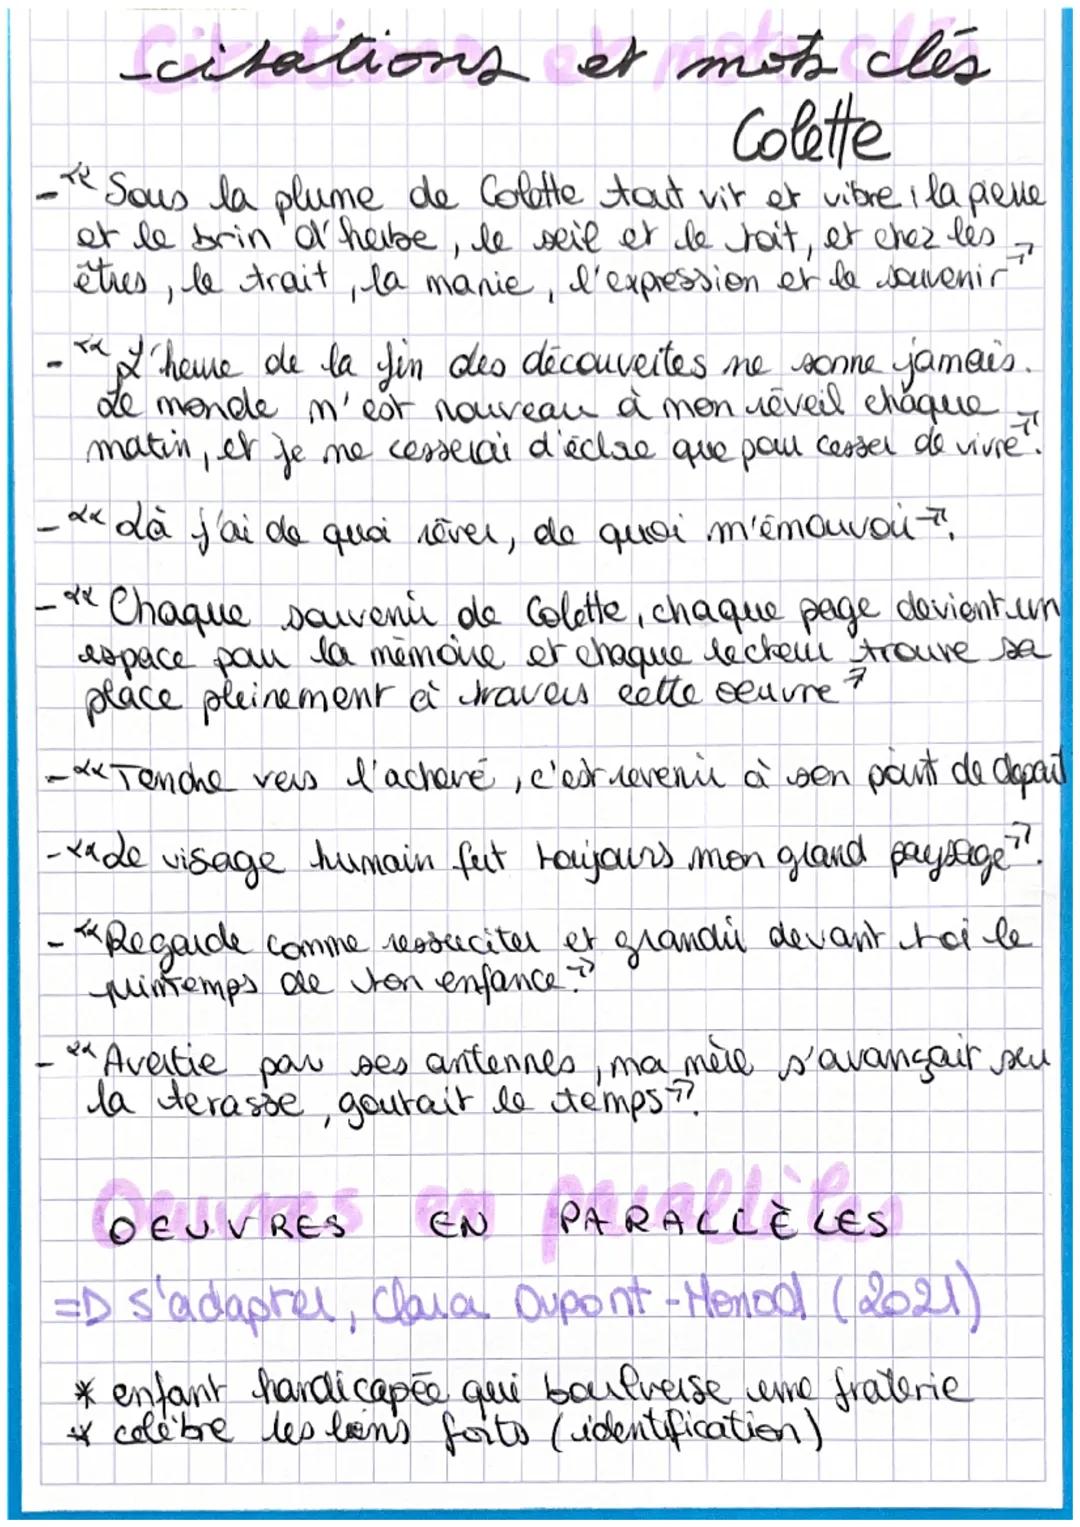 Citations et mots clés
-citations et mots clés
Colette
- "Sous la plume de Colette tout vit et vibre, la pierre
et le brin d'herbe, le seil et le toit, et chez les
êtres, le trait, la manie, l'expression et le souvenir"
- "L'heure de la fin des découvertes ne sonne jamais.
Le monde m'est nouveau à mon réveil chaque
matin, et je ne cesserai d'éclore que pour cesser de vivre".
- "Là j'ai de quoi rêver, de quoi m'émouvoir".
- "Chaque souvenir de Colette, chaque page devient un
espace pour la mémoire et chaque lecteur trouve sa
place pleinement à travers cette oeuvre"
- "Tendre vers l'achevé, c'est revenir à son point de depart
- "Le visage humain fut toujours mon grand paysage".
- "Regarde comme ressuciter et grandir devant toi le
printemps de ton enfance."
- "Avertie par ses antennes, ma mère s'avançait sur
la terasse, goutait le temps".
Oeuvres en parallèles
OEUVRES EN PARALLÈLES
=D S'adapter, Clara Dupont-Monod (2021)
* enfant handicapée qui boulverse une fraterie
* celèbre les liens forts (identification)